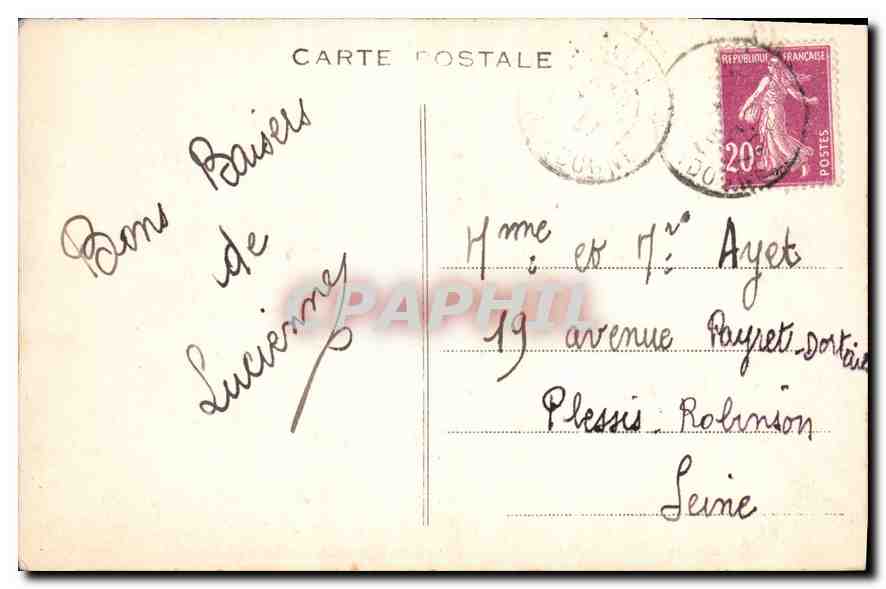 CARTE POSTALE
REPUBLIQUE FRANÇAISE
20c
POSTES
DORDOGNE
Bons Baisers
de
Lucienne
Mme et Mr Ayet
19 avenue Payret-Dortail
Plessis-Robinson
Seine
CPAPHIL